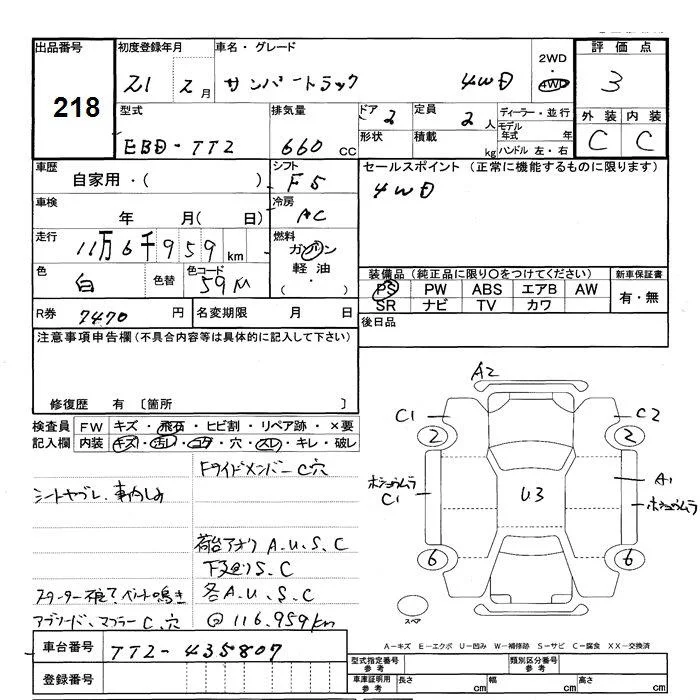 出品番号 初度登録年月 車名・グレード 2WD・4WD 評価点
218 21年 2月 サンバートラック 4WD 3
型式 排気量 ドア 2 定員 2人 ディーラー・並行 外装 内装
EBD-TT2 660cc 形状 積載 kg モデル年式 年 ハンドル 左・右 C C
車歴 自家用・( ) シフト F5 セールスポイント (正常に機能するものに限ります)
車検 年 月( 日) 冷房 AC 4WD
走行 11万6千959km 燃料 ガソリン 軽油・( )
色 白 色替 色コード 59M 装備品(純正品に限り○をつけてください) 新車保証書
PS PW ABS エアB AW 有・無
SR ナビ TV カワ
R券 7470円 名変期限 月 日 後日品
注意事項申告欄(不具合内容等は具体的に記入して下さい)
修復歴 有 〔箇所 〕
検査員記入欄 FW キズ・飛石・ヒビ割・リペア跡・×要
内装 キズ・汚レ・コゲ・穴・スレ・キレ・破レ
Fサイドメンバー C穴
シートヤブレ、車内しみ
荷台アオリ A.U.S.C
下廻りS.C
スターター不良?、ベルト鳴き 各A.U.S.C
アブソード、マフラー C.穴 @116.959km
A2
C1 C2
2 2
ホシュウムラ C1 U3 A1 ホシュウムラ
6 6
スペア
A-キズ E-エクボ U-凹み W-補修跡 S-サビ C-腐食 XX-交換済
車台番号 TT2-435807
登録番号
型式指定番号 参考 類別区分番号 参考
車庫証明用 参考 長さ cm 幅 cm 高さ cm